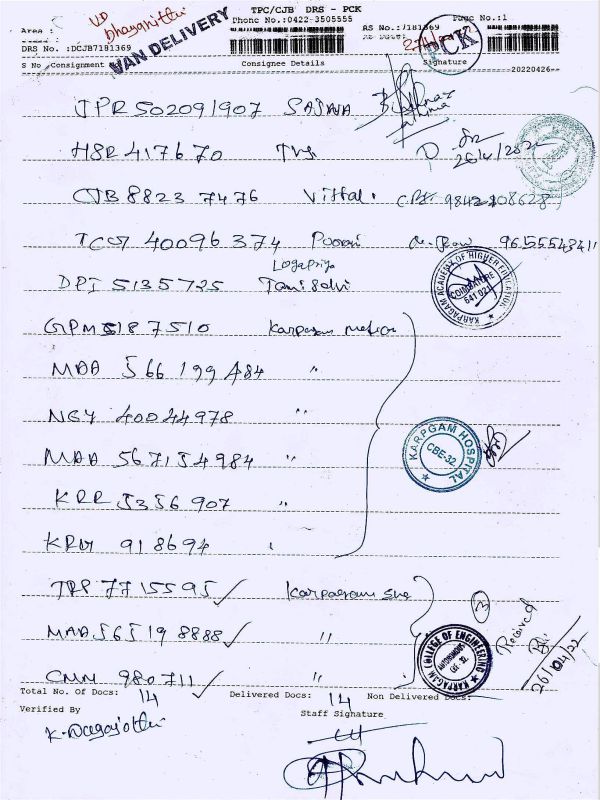 TPC/CJB DRS - PCK
Phone No.:0422-3505555
Area :
RS No.:/181369
Page No.:1
DRS No. :DCJB7181369
VAN DELIVERY
PCK
S No Consignment
Consignee Details
Signature
20220426--
JPR 502091907 SAJNA
HSR 417670 TVS
26/4/202
CJB 8823 7476 Vittal. 9842208628
TCR 40096374 Poorni 9655548411
Logapriya
DPI 5135725 Tamil Selvi
KARPAGAM ACADEMY OF HIGHER EDUCATION
COIMBATORE
641 021
GPM 5187510 Karpagam
MAA 566 199 484 "
NGY 40044978 "
MAA 567154984 "
KARPGAM HOSPITAL
CBE-32
KRR 5356 907 "
KRM 918694 "
TRP 7715595 Karpagam
MAA 565198888 "
3
Received
26/04/22
KARPAGAM COLLEGE OF ENGINEERING
AUTONOMOUS
CBE - 32.
CMM 980711 "
Total No. Of Docs: 14 Delivered Docs: 14 Non Delivered Docs:
Verified By
Staff Signature